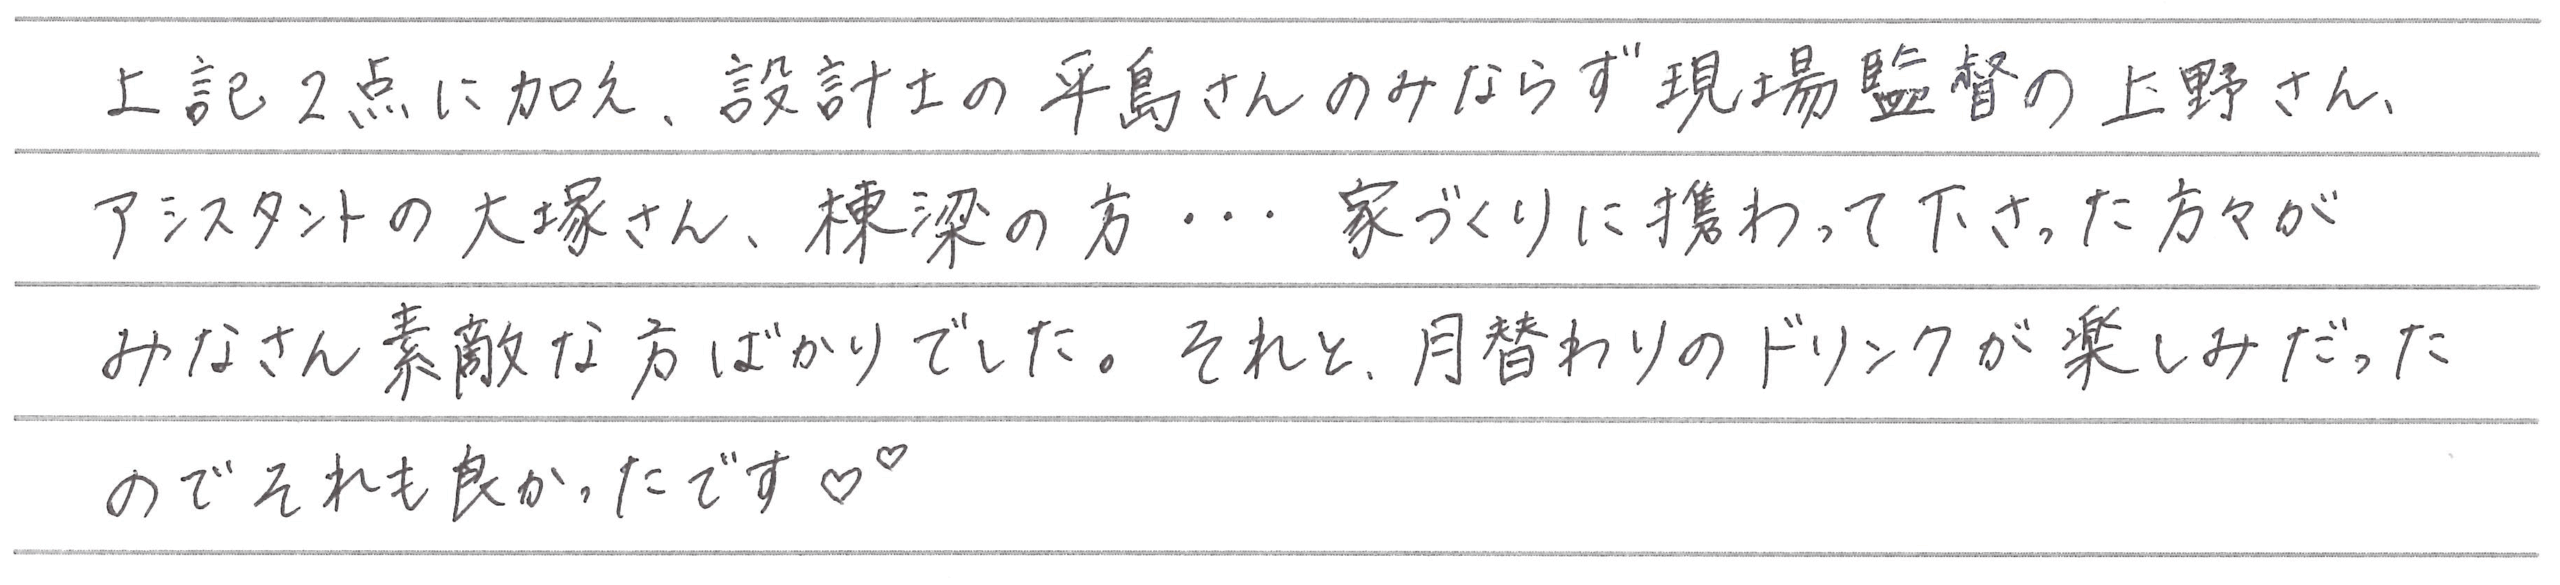 上記2点に加え、設計士の平島さんのみならず現場監督の上野さん、
アシスタントの大塚さん、棟梁の方・・・家づくりに携わって下さった方々が
みなさん素敵な方ばかりでした。それと、月替わりのドリンクが楽しみだった
のでそれも良かったです♡♡